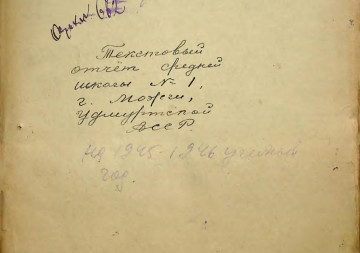 Текстовый
отчёт средней
школы № 1,
г. Можги,
Удмуртской
АССР.
на 1945-1946 учебный
год.